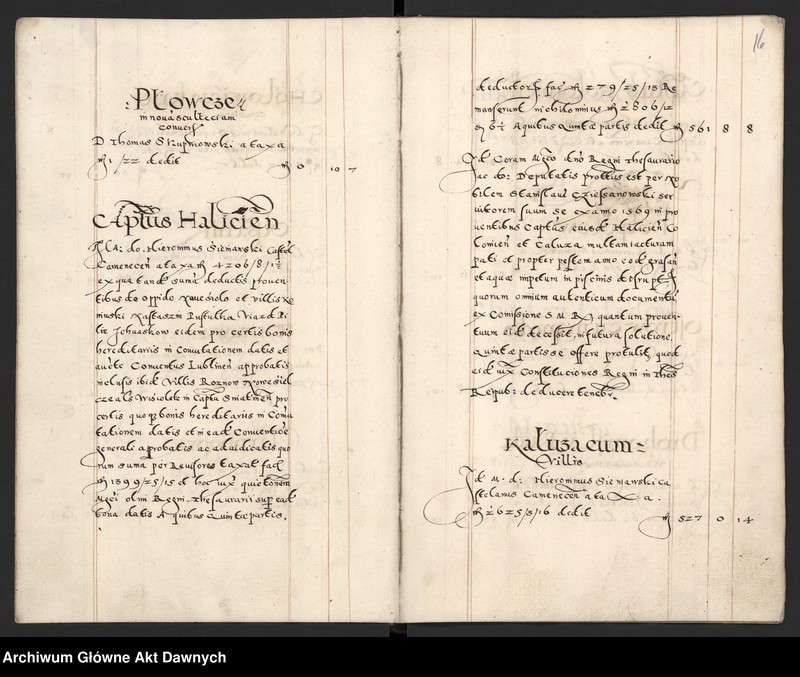 : Plowcze
in nova sculteciam
convers
D Thomas Skupniowski a taxa
m 1/22 dedit m 0 10 7
Captus Halicien
do. Hieronimus Sieniawski Castel
Camenecen a taxa m 4206/8/1½
ex qua tand suma deductis proven
tibus de oppido et villis
Pustulka
lie eidem pro certis bonis
hereditariis in Comutationem datis et
aucte Conventus Lublinen approbatis
inclusis ibid Villis Roznow
in Captu Sniatinen pro
certis quoqz bonis hereditariis in Comu
tationem datis et in ead Conventione
generali aprobatis ac adiudicatis quo
rum suma per Revisores taxat facit
m 1399/25/15 et hoc iux quietionem
Mgci olim Regni Thesaurarii sup ead
bona datis A quibus Quintæ partis.
16
deductor fac m 279/25/15 Re
manserunt nihilominus m 2806/12
A quibus Quintæ partis dedit m 561 8 8
Id Coram Mgco dno Regni Thesaurario
ac do: Deputatis protestus est per No
bilem Stanislaum Cziessanowski ser
vitorem suum se ex anno 1569 in pro
ventibus Captus eiusd Halicien Co
lomien et Calusa multam iacturam
pati et propter pestem anno eod grasan
et aquæ impetum in piscinis disrupt
quorum omnium autenticum documentu
ex Comissione S M R quantum proven
tuum eid decessit, in futura solutione
Quintæ partis se offere protulit, quod
eid iux Constituciones Regni in Thes
Reipub: deducere tenebr.
Kaluzacum
Villis
Id M. d: Hieronimus Siemawski ca
stelanus Camenecen a taxa.
m 2625/3/16 dedit m 527 0 14
Archiwum Główne Akt Dawnych